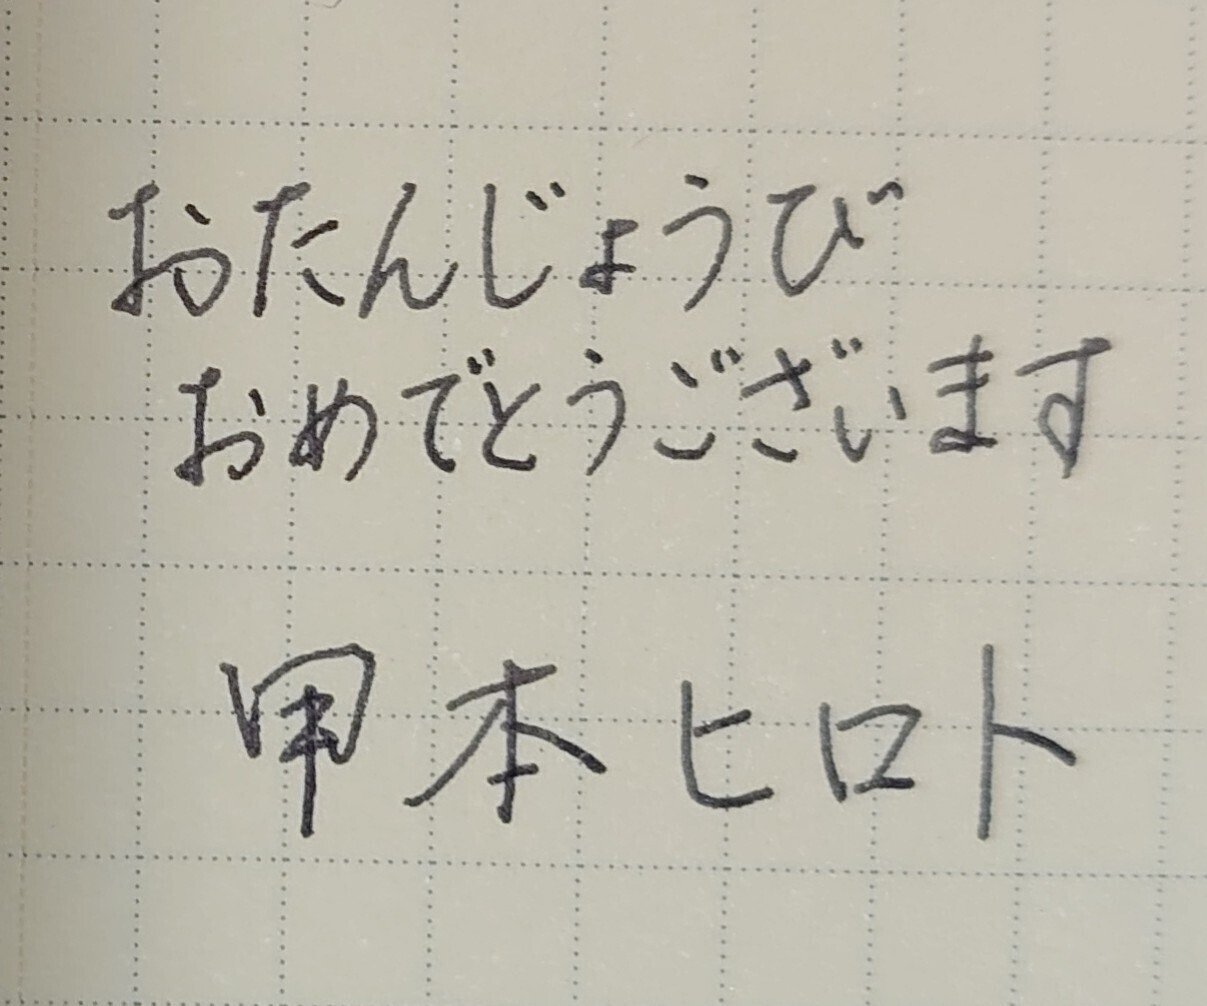 おたんじょうび
おめでとうございます
甲本ヒロト